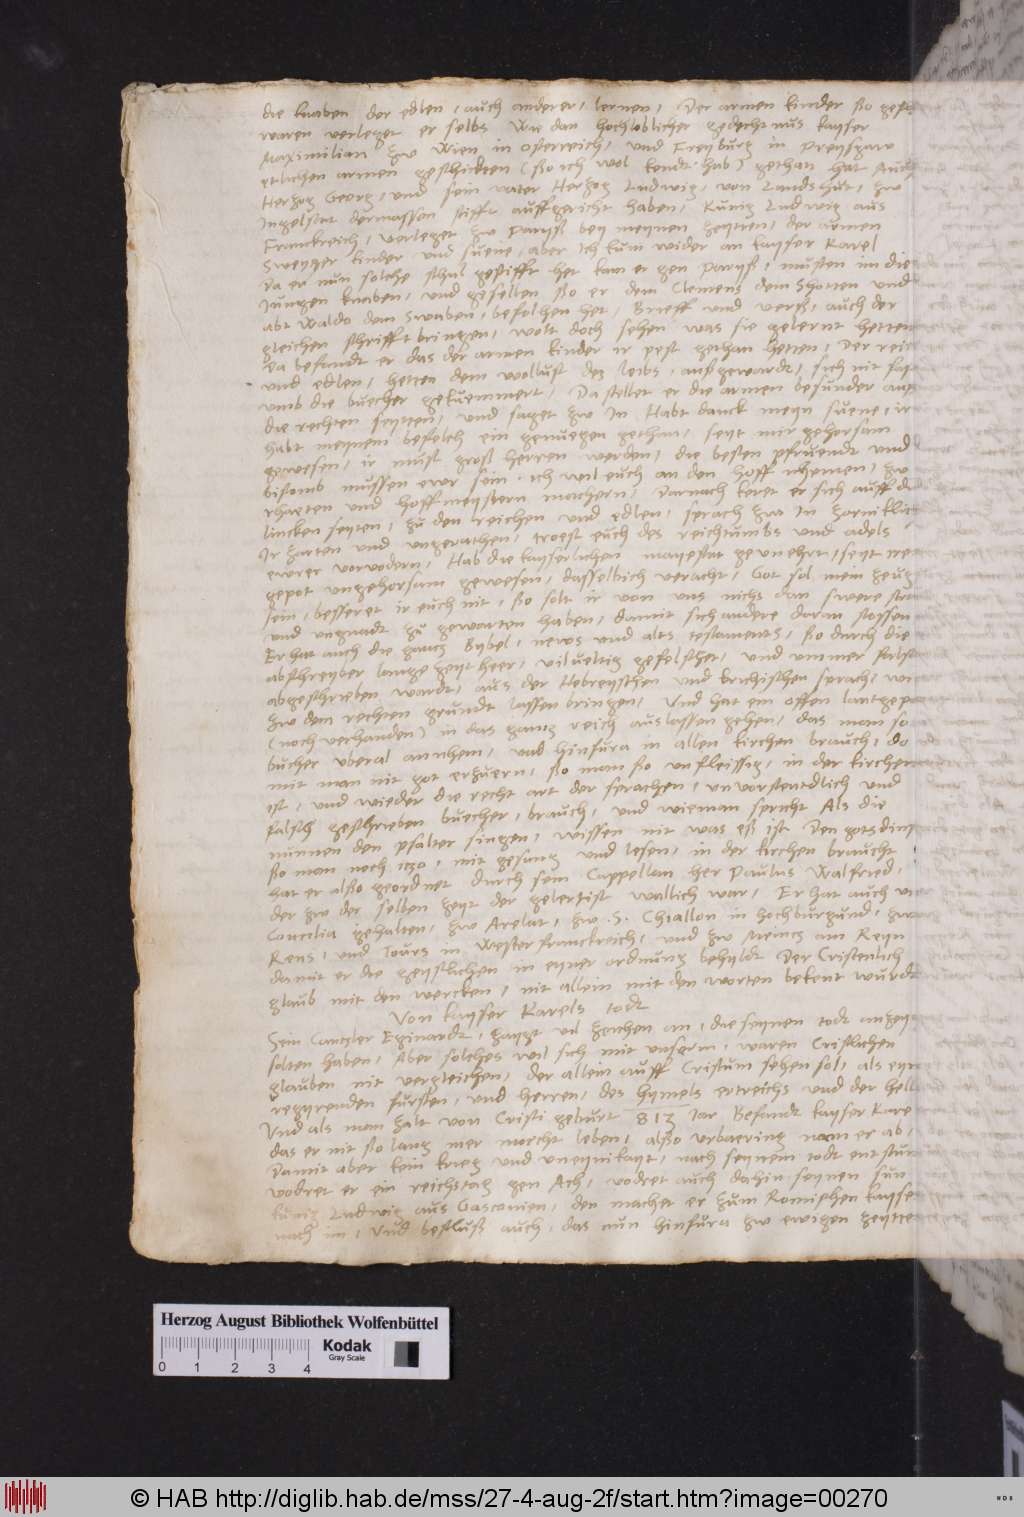 die knaben der edlen, auch anderer, lernen, Der armen kinder ßo gesch
waren verleget er selbs Wie dan hochloblicher gedechtnus kayser
Maximilian zw Wien in osterreich, und Freyburg in Preysgaw
etlichen armen geschickten (ßo ich wol kendt hab) gethan hat Auch
Herzog Georg, und sein vater Herzog Ludwig, von Landshut, zw
Ingelstat dermassen stifft auffgericht haben, Kunig Ludwig aus
Franckreich, verleget zw Paryß bey meynen zeytten, der armen
Sweyzer kinder und suene, aber Ich kum wider an kayser Karel
Da er nun solche schul gestifft het kam er gen Paryß, musten im die
Jungen knaben, und gesellen ßo er dem Clemens dem Schotten und
abt Waldo dem Swaben, befolhen het, Brieff und verß, auch der
gleichen schrifft bringen, wolt doch sehen was sie gelernt hetten
Da befandt er das der armen kinder ir pest gethan hetten, Der reich
und edlen, hetten dem wollust des leibs, außgewardt, sich nit fast
umb die buecher gekuemmert, Da stellet er die armen besunder auf
die rechten seytten, und saget zw In Habt danck meyn suene, ir
habt meynem befelch ein genuegen gethan, seyt mir gehorsam
gewesen, ir must groß herren werden, die besten pfruendt und
bistomb mussen ewr sein. ich wil euch an den hoff nhemen, zw
rhaeten und hoffmeystern machern, Darnach keret er sich auff die
lincken seyten, zu den reichen und edlen, sprach zw In zorniklich
Ir zarten und ungerathen, troest euch des reichtumbs und adels
ewrer vorvodern, Hab die kayserlichen mayestat geunehrt, seyt mei
gepot ungehorsam gewesen, dasselbich veracht, Got sol mein zeug
sein, besseret ir euch nit, ßo solt ir von uns nichs dan swere stra
und ungnadt zu gewarten haben, damit sich andere daran stossen
Er hat auch die gantz Bybel, news und alts testaments, ßo durch die
abschreyber lannge zeyt heer, vilueltig gefelschet, und ummer falsch
abgeschrieben wardt, aus der Hebreyschen und krichischen sprach, wi
zw dem rechten grundt lassen bringen, Und hat ein offen lantgepo
(noch verhanden) in das gantz reich auslassen gehen, das man so
bucher uberal annhem, und hinfura in allen kirchen brauch, do
mit man nit got erzuern, ßo man ßo unfleissig, in der kirchen
ist, und wieder die recht art der sprachen, unvorstendlich und
falsch geschrieben buecher, brauch, und wie man spricht Als die
nunnen den psalter singen, wissen nit was eß ist Den gots dinst
ßo man noch itzo, mit gesang und lesen, in der kirchen braucht
hat er alßo geordnet durch sein Cappellan her Paulus Walfried,
der zw der selben zeyt der gelertist wallich war, Er hat auch vier
Concilia gehalten, zw Arelat, zw .S. Chiallon in hochburgund, zw
Rens, und Tours in Westerfranckreich, und zw Meincz am Reyn
damit er die geystlichen in eyner ordnung behyldt Der Cristenlich
glaub mit den wercken, nit allein mit den worten bekent wurdt
Von kayser Karels todt
Sein Cantzler Eginardt, zaygt vil zeichen an, die seynen todt anzeyg
solten haben, Aber solches wil sich mit unserm, waren Cristlichen
glauben nit vergleichen, der allein auff Cristum sehen sol, als eyn
regyrenden fursten, und herren, des hymels ertreichs und der hell
Und als man zalt von Cristi geburt 813 Jar Befandt kayser Kare
das er nit ßo lang mer moecht leben, alßo urbaering nam er ab,
Damit aber kein krieg und uneynikayt, nach seynem todt entstun
vodret er ein reichstag gen Ach, vodret auch dohin seynen sun
kunig Ludwig aus Gasconien, den machet er zum Romischen kayse
nach im, Und beschluß auch, das nun hinfura zw ewigen zeytten
Herzog August Bibliothek Wolfenbüttel
0 1 2 3 4
Kodak
Gray Scale
© HAB http://diglib.hab.de/mss/27-4-aug-2f/start.htm?image=00270